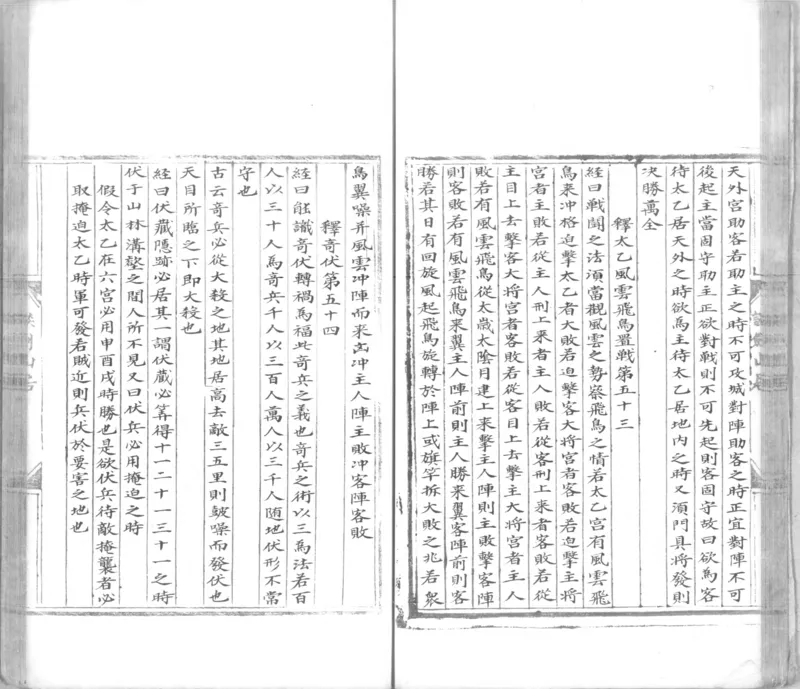 天外宫助客若助主之時不可攻城對陣助客之時正宜對陣不可
後起主當固守助主正欲對戰則不可先起則客固守故曰欲為客
待太乙居天外之時欲為主待太乙居地内之時又須門具將發則
決勝萬全
釋太乙風雲飛鳥置戰第五十三
經曰戰鬪之法須當觀風雲之勢察飛鳥之情若太乙宫有風雲飛
鳥来冲格迫擊太乙者大敗若迫擊客大將宫者客敗若迫擊主將
宫者主敗若從主人刑上来者主人敗若從客刑上来者客敗若從
主目上去擊客大將宫者客敗若從客目上去擊主大將宫者主人
敗若有風雲飛鳥從太歲太陰月建上来擊主人陣則主敗擊客陣
則客敗若有風雲飛鳥来翼主人陣前則主人勝来翼客陣前則客
勝若其日有回旋風起飛鳥旋轉於陣上或旗竿拆大敗之兆若衆
鳥翼噪并風雲冲陣而来出冲主人陣主敗冲客陣客敗
釋竒伏第五十四
經曰能識竒伏轉禍為福此竒兵之義也竒兵之術以三為法若百
人以三十人為竒兵千人以三百人萬人以三千人随地伏形不常
守也
古云竒兵必從大殺之地其地居高去敵三五里則皷噪而發伏也
天目所臨之下即大殺也
經曰伏藏隱跡必居其一謂伏藏必筭得十一二十一三十一之時
伏于山林溝壑之間人所不見又曰伏兵必用掩迫之時
假令太乙在六宫必用申酉戌時勝也是欲伏兵待敵掩襲者必
取掩迫太乙時軍可發若賊近則兵伏於要害之地也